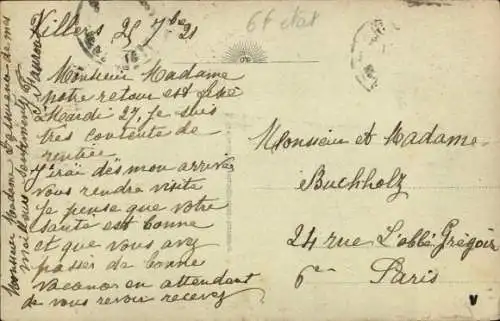 Villers 25 7bre 21
Monsieur Madame
notre retour est fixé
à Mardi 27, Je suis
très contente de
rentrée
J'irai dès mon arrivée
vous rendre visite
Je pense que votre
santé est bonne
et que vous avez
passés de bonne
vacances en attendant
de vous revoir recevez
Monsieur Madame de mes
meilleurs sentiments
Monsieur et Madame
Buchholz
24 rue L'abbé Grégoire
6e Paris
6f etat
V